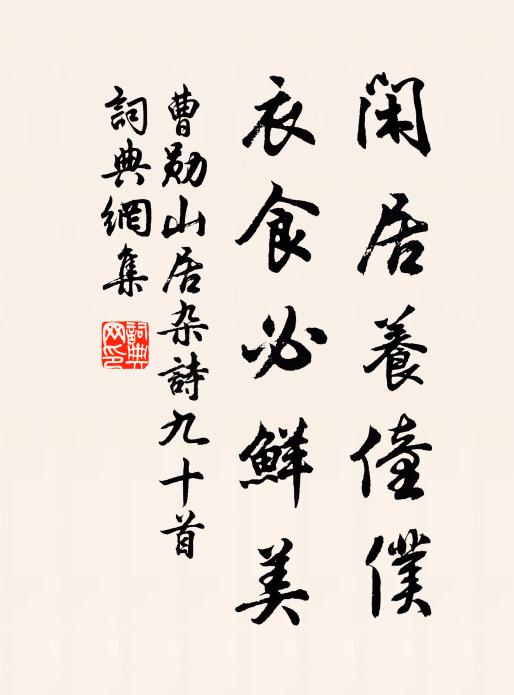 閑居養僮僕
衣食必鮮美
曹勛山居杂詩九十首
詞典網集
詞典
网印